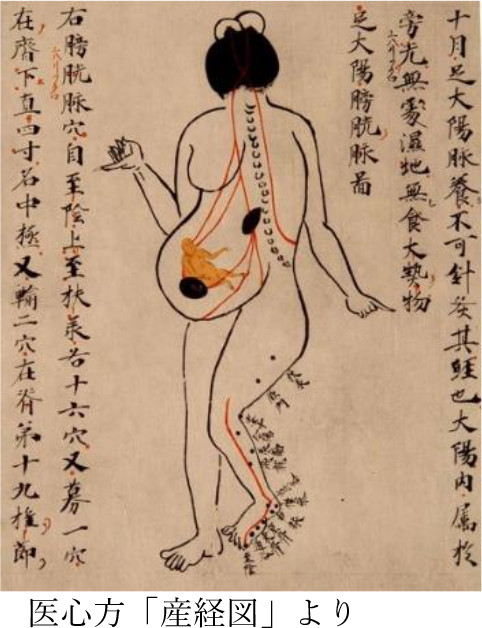 十月足大陽脉養不可針灸其経也大陽内属於
旁光無處濕地無食大熱物
足大陽膀胱脉啚
右膀胱脉穴自至陰上至扶承各十六穴又募一穴
在齊下直四寸名中極又輸二穴在脊第十九椎節
医心方「産経図」より